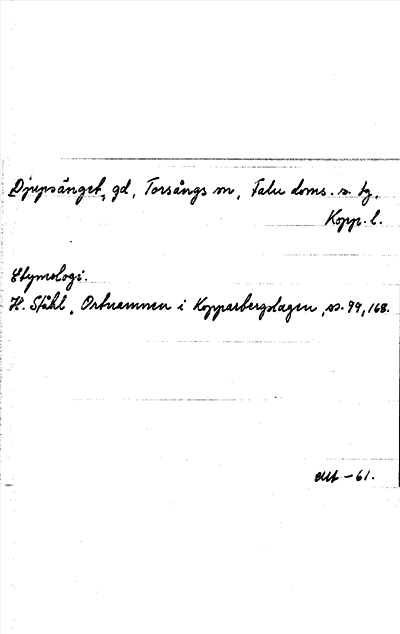 Djupsänget, gd, Torsångs sn, Falu doms. s. tg,
Kopp. l.
Etymologi.
H. Ståhl, Ortnamnen i Kopparbergslagen, ss. 99, 168.
-61.